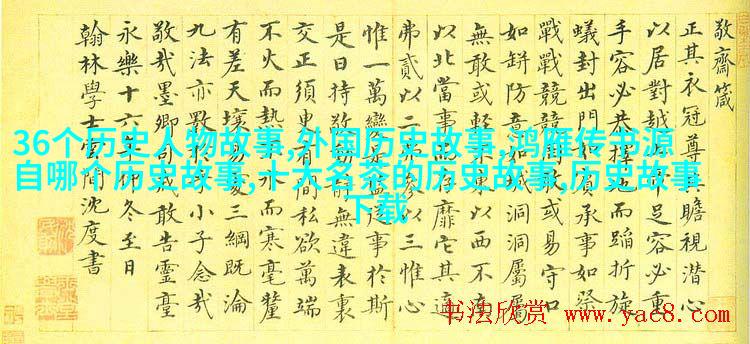 敬齋箴
正其衣冠尊其瞻視潛心
以居對越足容必重
手容必恭擇地而蹈折旋
蟻封出門如賓承事如祭
戰戰兢兢罔敢或易守口
如缾防意如城洞洞屬屬
無敢或輕不東以西不南
以北當事而存靡它其適
弗貳以二弗參以三惟心
惟一萬變是監從事於斯
是日持敬動靜無違表裏
交正須臾有間私欲萬端
不火而熱不冰而寒毫釐
有差天壤易處三綱既淪
九法亦斁於乎小子念哉
敬哉墨卿司戒敢告靈臺
永樂十六年仲冬至日
翰林學士雲間沈度書
36个历史人物故事,外国历史故事,鸿雁传书源
自哪个历史故事,十大名茶的历史故事,历史故事
下载
书法欣赏
www.yac8.com